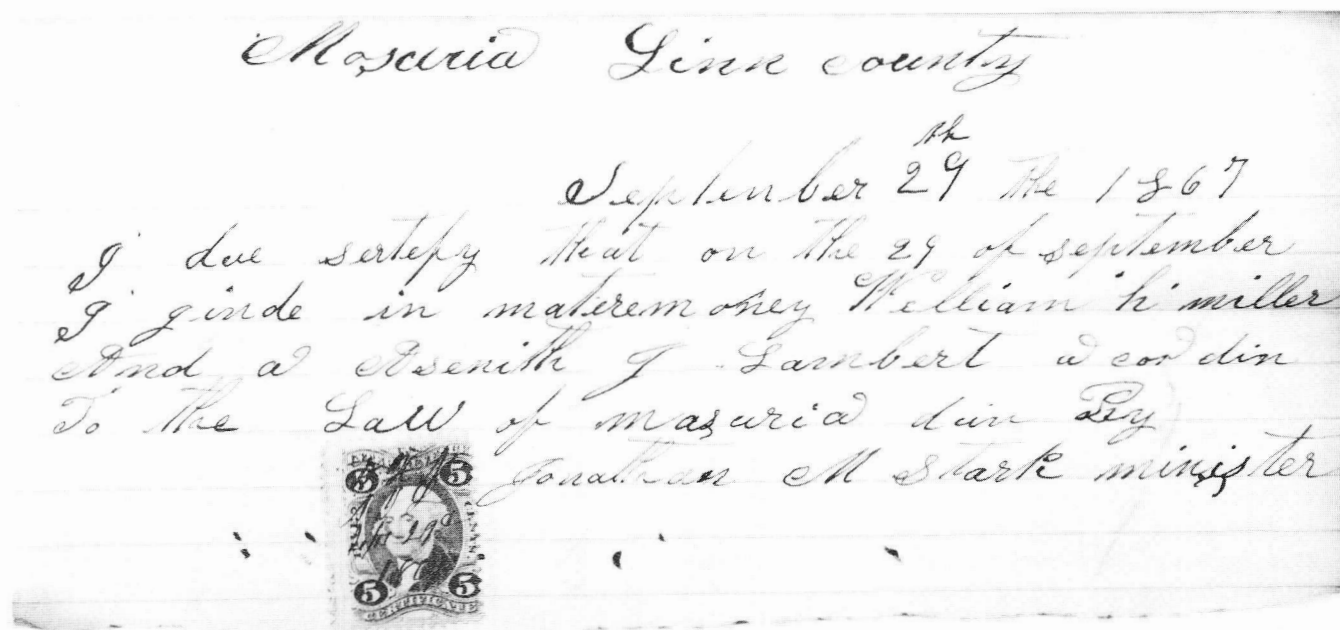 Mosuria Linn county
September 29th the 1867
I due sertefy that on the 29 of september
I ginde in materemoney William h miller
And a Asenith J Lambert a cor din
To the Law of masuria dun By
Jonathan M Stark minister
5 5
CENTS
5 5
CERTIFICATE